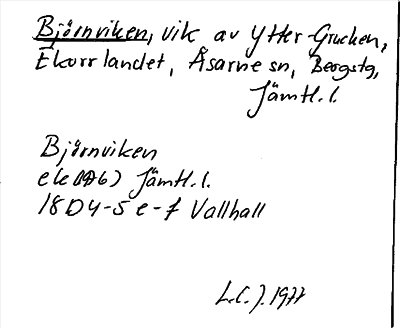 Björnviken, vik av Ytter-Grucken,
Ekorrlandet, Åsarne sn, Bergstg,
Jämtl.l.
Björnviken
ek (1976) Jämtl.l.
18D4-5 e-f Vallhall
L.C.J. 1977